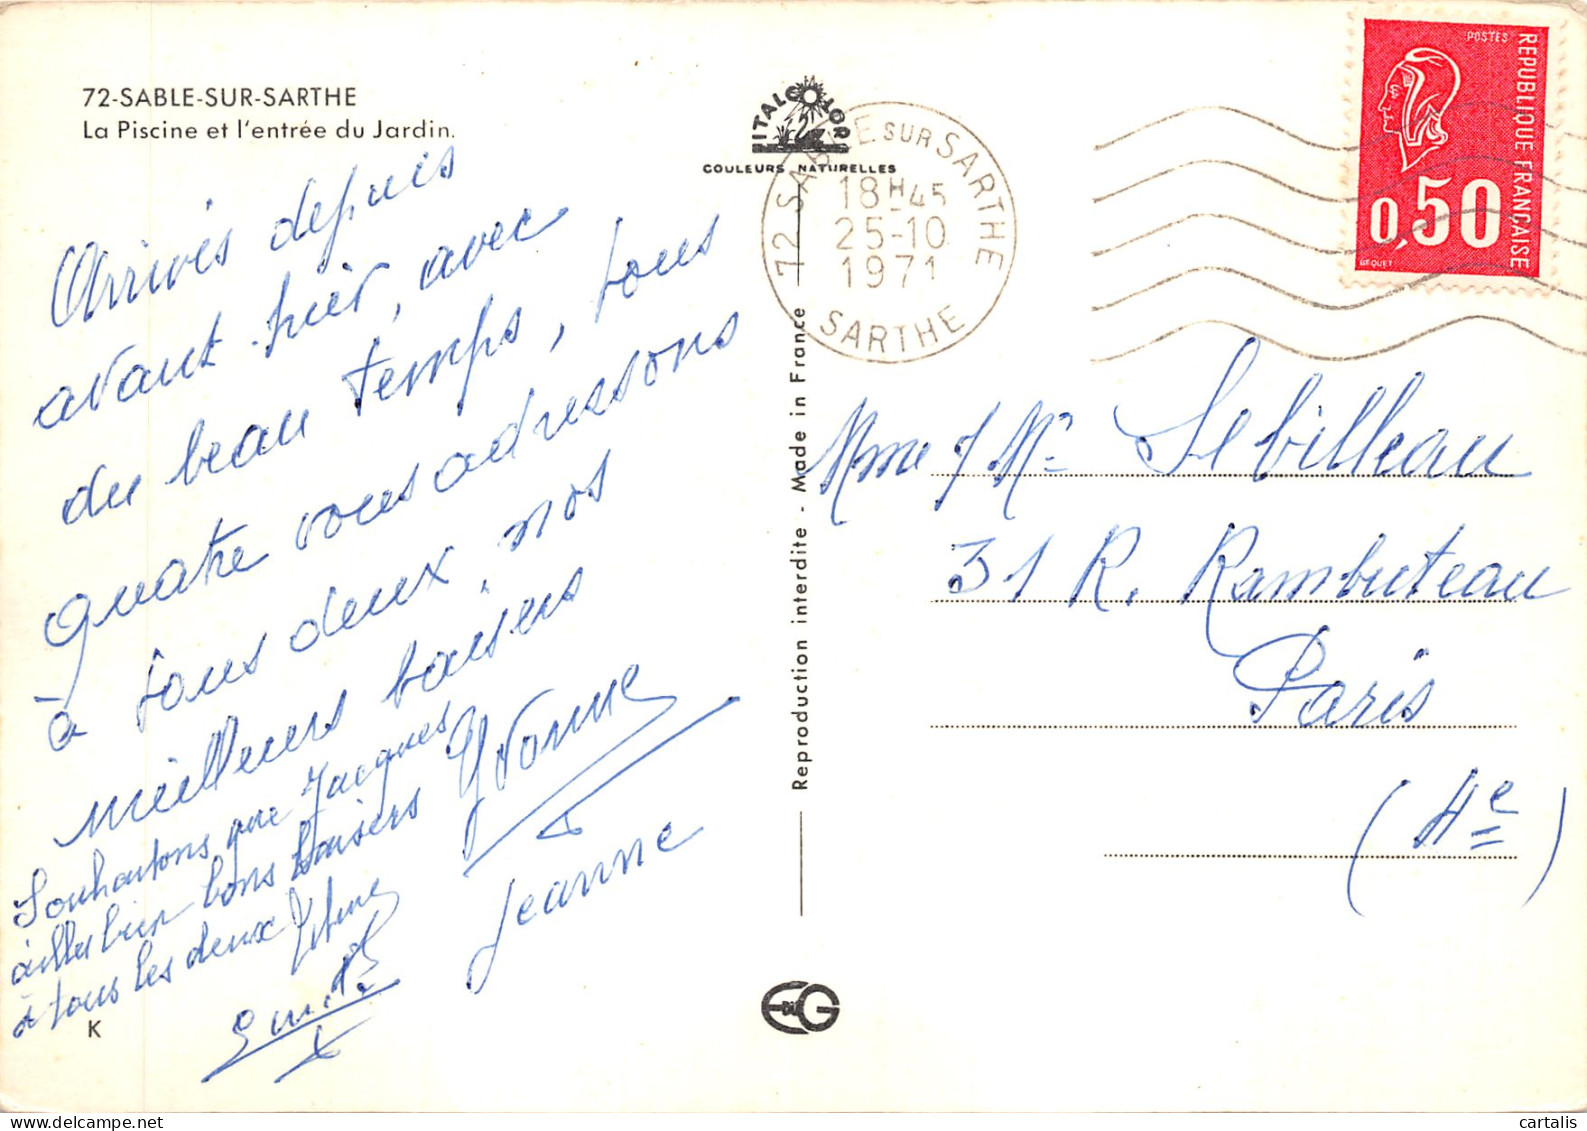 72-SABLE-SUR-SARTHE
La Piscine et l'entrée du Jardin.
Arrivés depuis
avant hier, avec
du beau temps, tous
quatre vous adressons
à tous deux, nos
meilleurs baisers
Yvonne
Souhaitons que Jacques
aille bien bons baisers
à tous les deux
Jeanne
K
ITALCOLOR
COULEURS NATURELLES
72 SABLE SUR SARTHE
18H45
25-10
1971
SARTHE
POSTES
REPUBLIQUE FRANÇAISE
0,50
BEQUET
Reproduction interdite - Made in France
Mme / Mr Sebilleau
31 R. Rambuteau
Paris
(4e)
cartalis